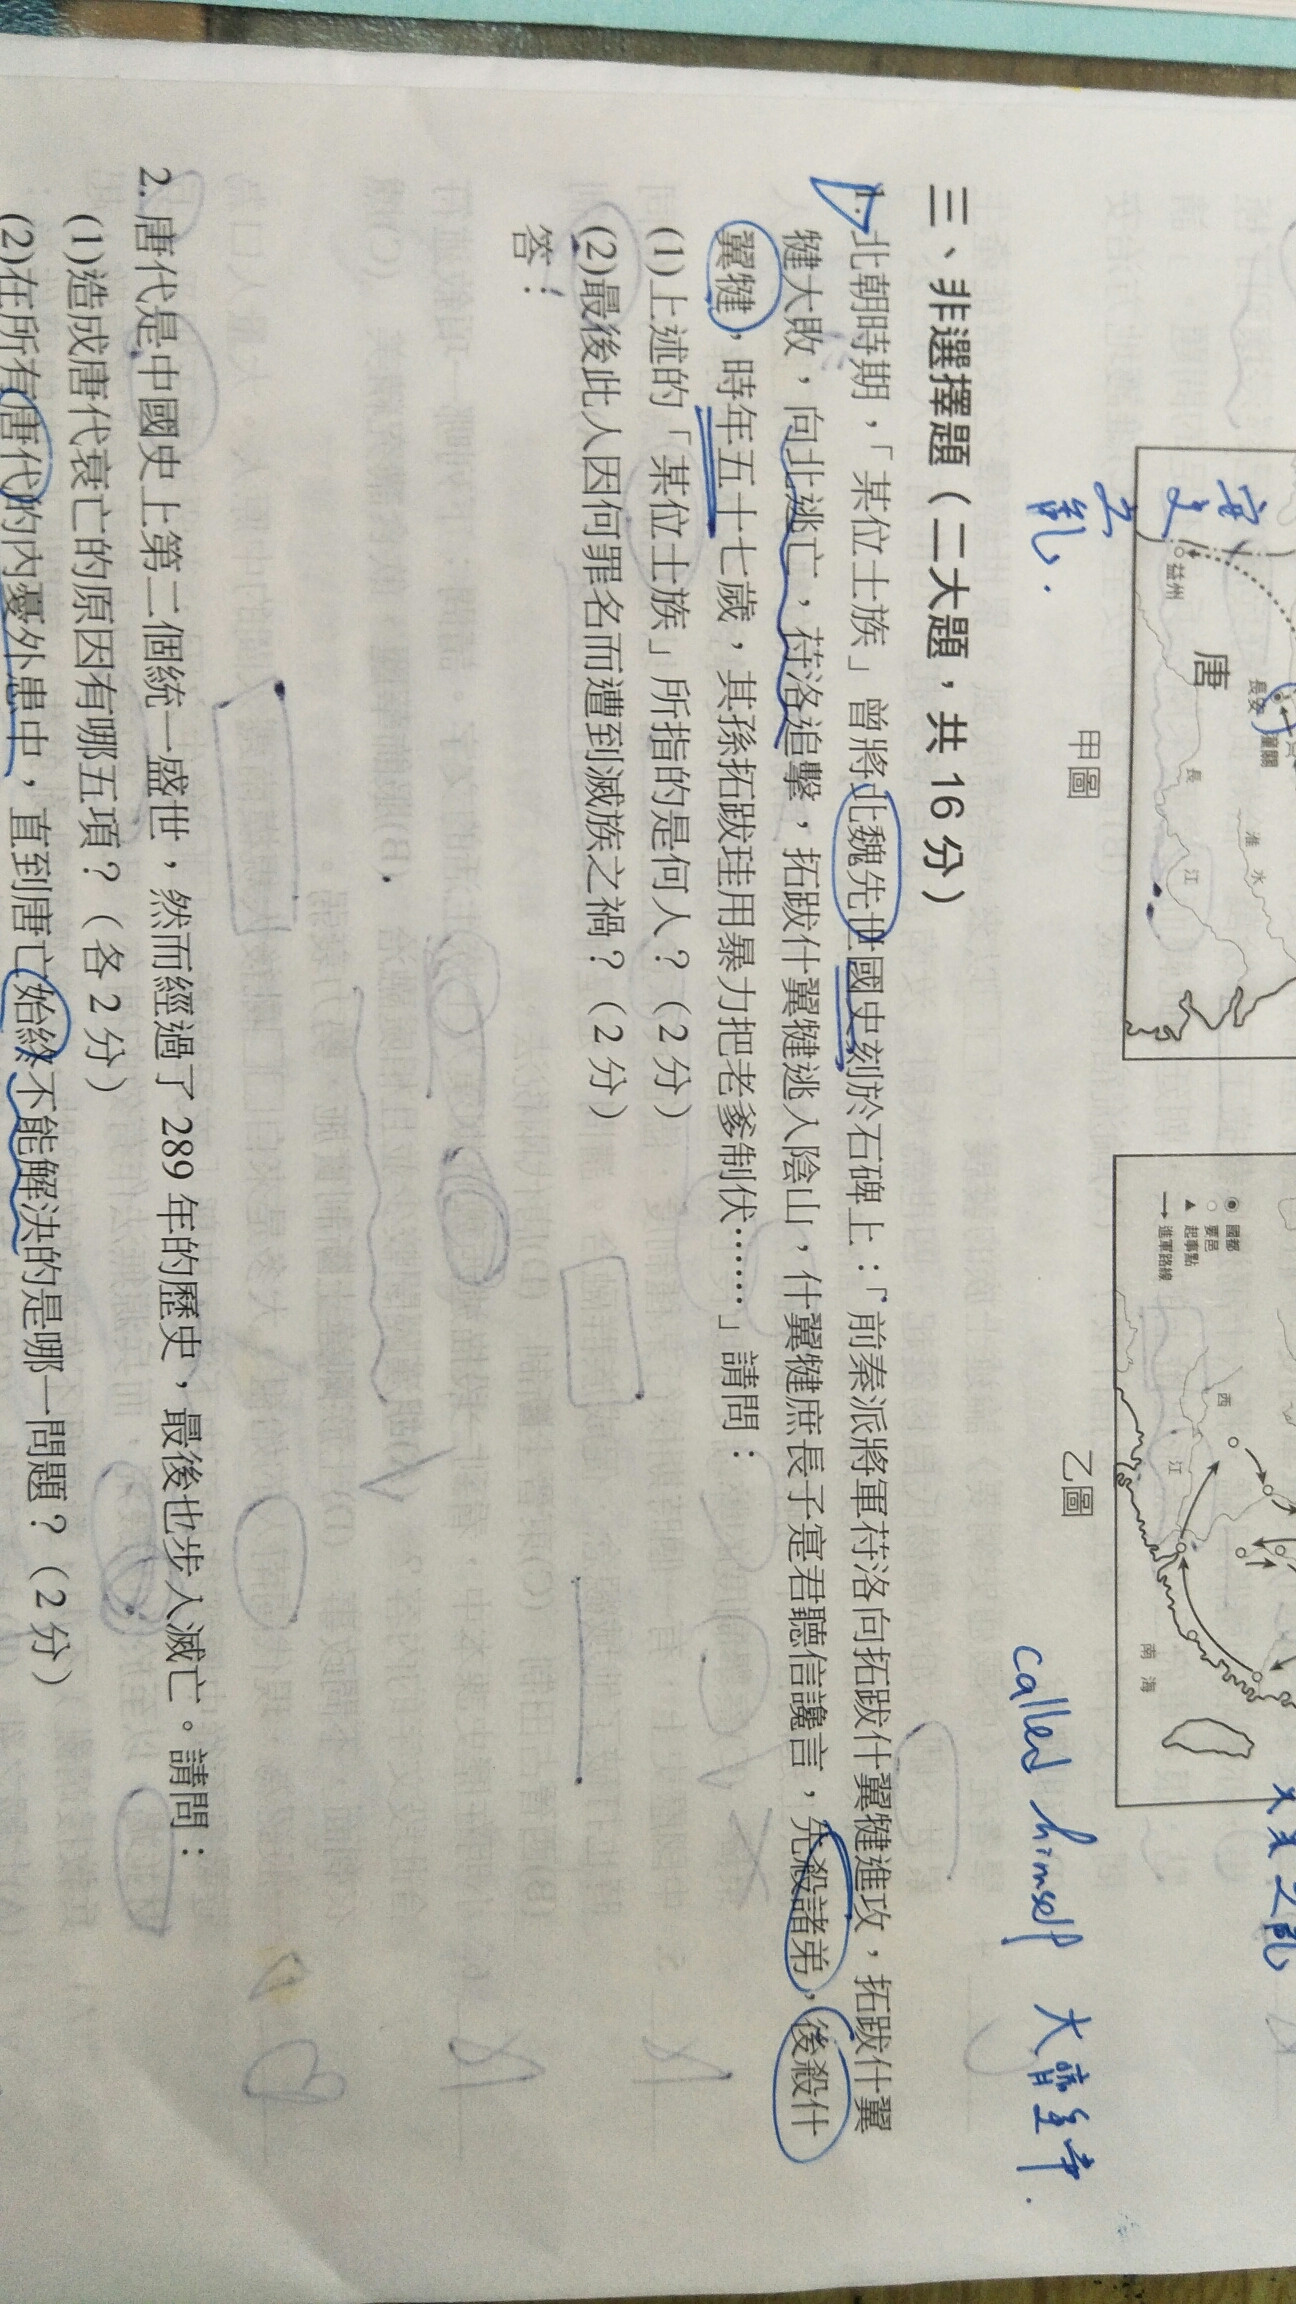 安
史
之
亂.
益州
唐
長安
潼關
長
江
淮
水
甲圖
國都
要邑
起事點
進軍路線
西
江
南海
乙圖
之亂
called himself 大齊皇帝.
三、非選擇題(二大題,共16分)
1. 北朝時期,「某位士族」曾將北魏先世國史刻於石碑上:「前秦派將軍苻洛向拓跋什翼犍進攻,拓跋什翼
犍大敗,向北逃亡,苻洛追擊,拓跋什翼犍逃入陰山,什翼犍庶長子寔君聽信讒言,先殺諸弟,後殺什
翼犍,時年五十七歲,其孫拓跋珪用暴力把老爹制伏……」請問:
(1)上述的「某位士族」所指的是何人?(2分)
(2)最後此人因何罪名而遭到滅族之禍?(2分)
答:
2. 唐代是中國史上第二個統一盛世,然而經過了289年的歷史,最後也步入滅亡。請問:
(1)造成唐代衰亡的原因有哪五項?(各2分)
(2)在所有唐代的內憂外患中,直到唐亡始終不能解決的是哪一問題?(2分)